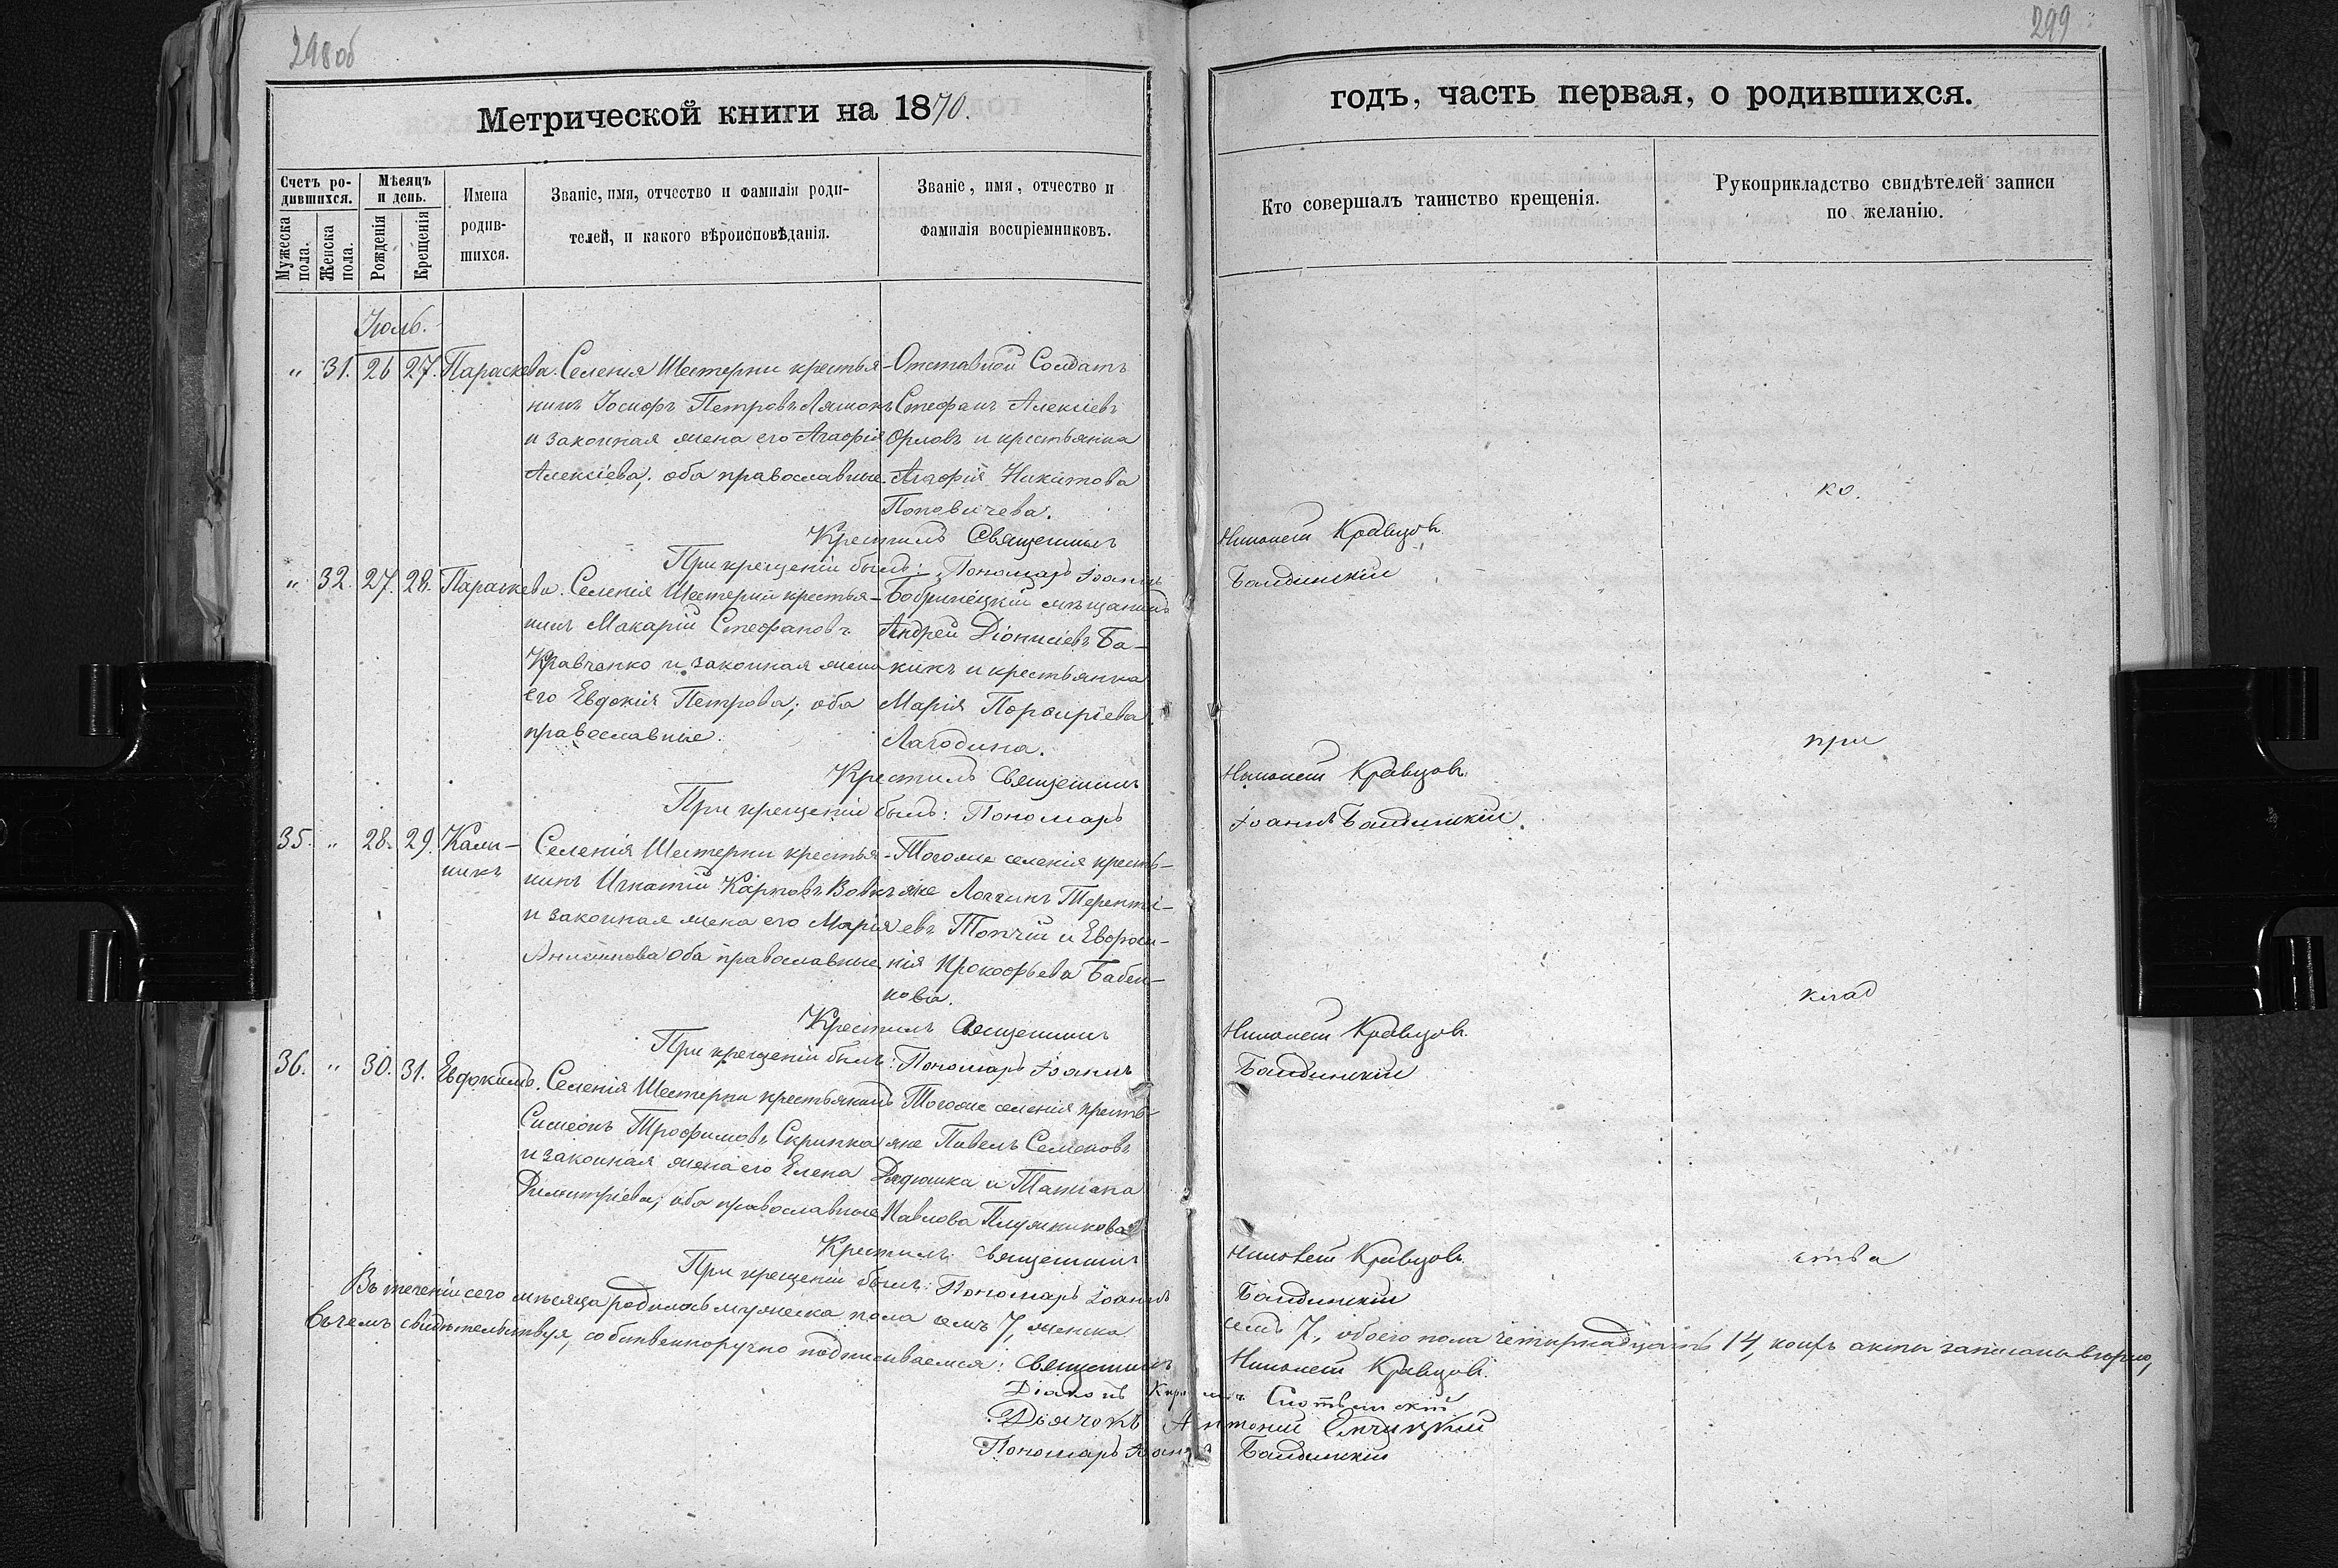 298об
299
Метрической книги на 1870.
годъ, часть первая, о родившихся.
Счетъ ро-
дившихся.
Мѣсяцъ
и день.
Мужеска
пола.
Женска
пола.
Рожденія
Крещенія
Имена
родив-
шихся.
Званіе, имя, отчество и фамилія роди-
телей, и какого вѣроисповѣданія.
Званіе, имя, отчество и
фамилія воспріемниковъ.
Кто совершалъ таинство крещенія.
Рукоприкладство свидѣтелей записи
по желанію.
Іюль.
" 31. 26 27. Параскева.
Селенія Шестерни крестья-
нинъ Іосифъ Петровъ Ляшокъ
и законная жена его Агафія
Алексіева; оба православные.
Отставной Солдатъ
Стефанъ Алексіевъ
Орловъ и крестьянка
Агафія Никитова
Поповичева.
Крестилъ Священникъ
Никаноръ Кравцовъ.
При крещеніи былъ: Пономарь Іоаннъ
ко.
" 32. 27. 28. Параскева.
Селенія Шестерни крестья-
нинъ Макарій Стефановъ
Кравченко и законная жена
его Евдокія Петрова; оба
православные.
Бобринецкій мѣщанинъ
Андрей Діонисіевъ Ба-
кикъ и крестьянка
Марія Порфиріева
Лагодина.
Крестилъ Священникъ
При крещеніи былъ: Пономарь
при
35. " 28. 29. Кали-
никъ
Селенія Шестерни крестья-
нинъ Игнатій Карповъ Вовкъ
и законная жена его Марія
оба православные.
Тогоже селенія кресть-
яне Логгинъ Теренті-
евъ Топчій и Евфроси-
нія Прокофьева Бабен-
кова.
Крестилъ Священникъ
При крещеніи былъ: Пономарь Іоаннъ
клад
36. " 30. 31. Евдокимъ.
Селенія Шестерни крестьянинъ
Симеонъ Трофимовъ Скрипка
и законная жена его Елена
Димитріева; оба православные
Тогоже селенія кресть-
яне Павелъ Семеновъ
Дядюшка и Татіана
Павлова Плужникова
Крестилъ Священникъ
При крещеніи былъ: Пономарь Іоаннъ
ства
Въ теченіи сего мѣсяца родилось мужеска пола семь 7, женска
семь 7, обоего пола четырнадцать 14, коихъ акты записаны вѣрно,
въ чемъ свидѣтельствуя, собственноручно подписываемся: Священникъ
Кравцовъ.
Діаконъ
Дьячокъ Антоній
Пономарь Іоаннъ